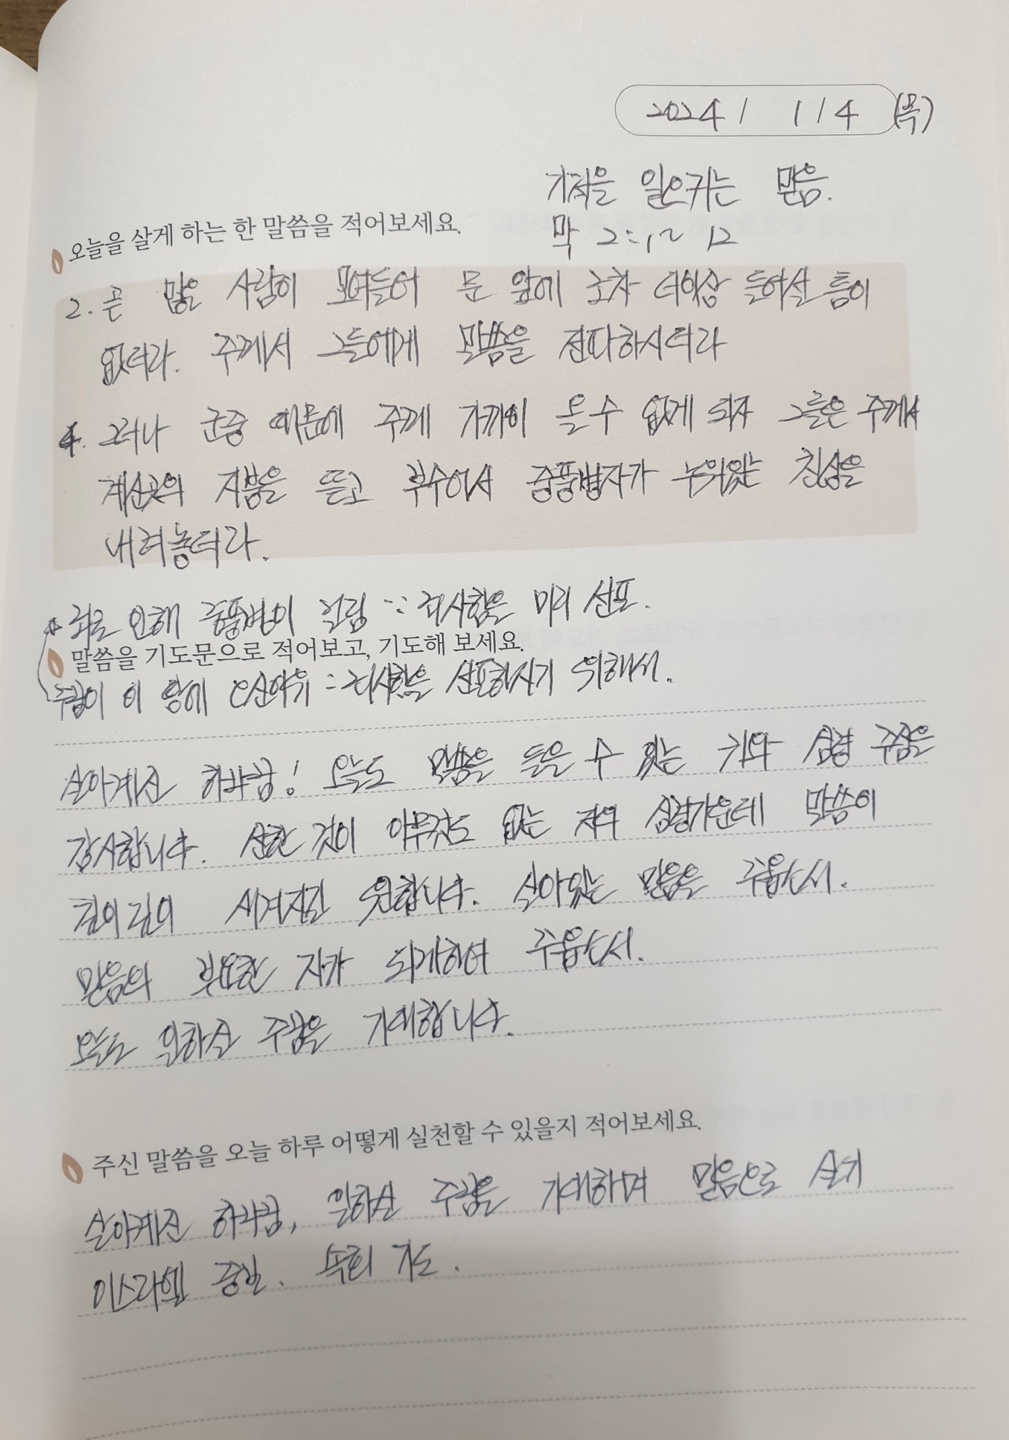 2024 / 1 / 4 (목)
기적을 일으키는 믿음.
막 2:1~12
오늘을 살게 하는 한 말씀을 적어보세요.
2. 곧 많은 사람이 모여들어 문 앞에 조차 더이상 들어설 틈이
없더라. 주께서 그들에게 말씀을 전파하시더라
4. 그러나 군중 때문에 주께 가까이 올 수 없게 되자 그들은 주께서
계신곳의 지붕을 뜯고 부수어서 중풍병자가 누워있는 침상을
내려놓더라.
죄로 인해 중풍병이 걸림 ∵ 죄사함을 미리 선포.
말씀을 기도문으로 적어보고, 기도해 보세요.
주님이 이 땅에 오신이유 ∵ 죄사함을 선포하시기 위해서.
살아계신 하나님! 오늘도 말씀을 들을 수 있는 귀와 심령 주심을
감사합니다. 선한 것이 아무것도 없는 저의 심령가운데 말씀이
길이길이 새겨지길 원합니다. 살아있는 믿음을 주옵소서.
믿음의 부요한 자가 되게하여 주옵소서.
오늘도 일하실 주님을 기대합니다.
주신 말씀을 오늘 하루 어떻게 실천할 수 있을지 적어보세요.
살아계신 하나님, 일하실 주님을 기대하며 믿음으로 살기
이스라엘 중보. 속회 기도.